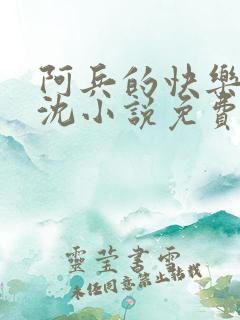 阿兵的快樂
沈小說免費
靈莹書雪
未經同意禁止轉載